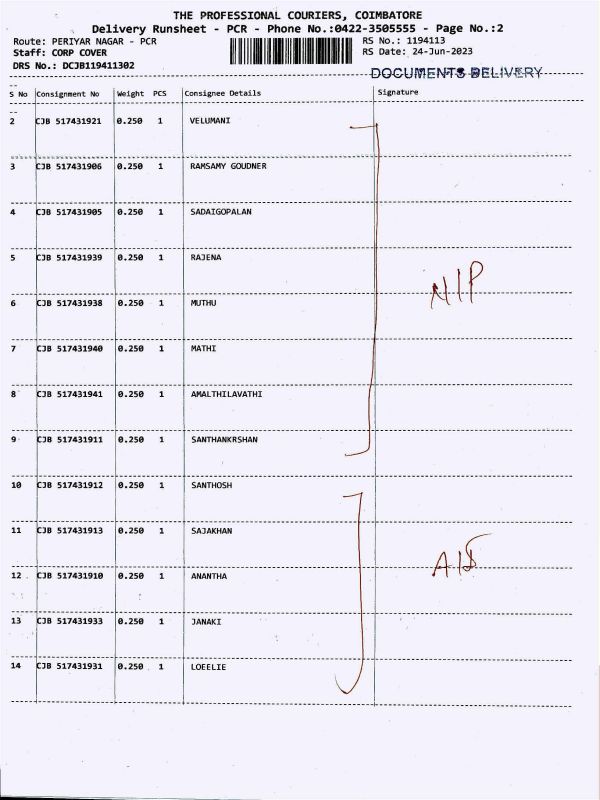 THE PROFESSIONAL COURIERS, COIMBATORE
Delivery Runsheet - PCR - Phone No.:0422-3505555 - Page No.:2
Route: PERIYAR NAGAR - PCR RS No.: 1194113
Staff: CORP COVER RS Date: 24-Jun-2023
DRS No.: DCJB119411302
DOCUMENTS DELIVERY
S No Consignment No Weight PCS Consignee Details Signature
2 CJB 517431921 0.250 1 VELUMANI
3 CJB 517431906 0.250 1 RAMSAMY GOUDNER
4 CJB 517431905 0.250 1 SADAIGOPALAN
5 CJB 517431939 0.250 1 RAJENA
6 CJB 517431938 0.250 1 MUTHU
N/P
7 CJB 517431940 0.250 1 MATHI
8 CJB 517431941 0.250 1 AMALTHILAVATHI
9 CJB 517431911 0.250 1 SANTHANKRSHAN
10 CJB 517431912 0.250 1 SANTHOSH
11 CJB 517431913 0.250 1 SAJAKHAN
12 CJB 517431910 0.250 1 ANANTHA
13 CJB 517431933 0.250 1 JANAKI
14 CJB 517431931 0.250 1 LOEELIE